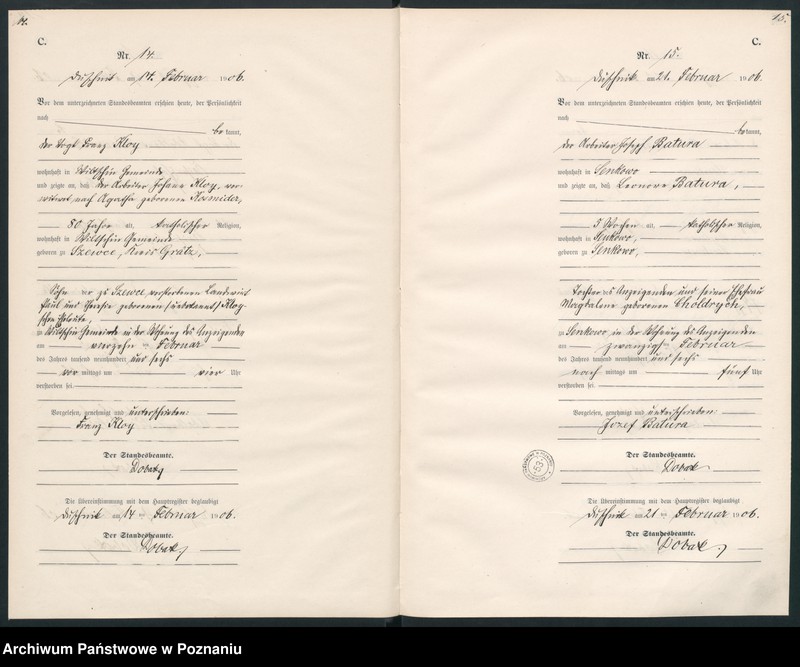 14.
C.
Nr. 14.
Duschnik am 14. Februar 1906.
Vor dem unterzeichneten Standesbeamten erschien heute, der Persönlichkeit
nach
bekannt,
der Vogt Franz Kloy
wohnhaft in Wilkschin Gemeinde
und zeigte an, daß der Arbeiter Johann Kloy, ver-
witwet nach Agatha geborenen Kosmider,
80 Jahre alt, katholischer Religion,
wohnhaft in Wilkschin Gemeinde
geboren zu Szewce, Kreis Grätz,
Sohn der zu Szewce verstorbenen Landwirt
Paul und geborenen (unbekannt) Kloy-
schen Eheleute,
in Wilkschin Gemeinde in der Wohnung des Anzeigenden
am vierzehnten Februar
des Jahres tausend neunhundert und sechs
vor mittags um vier Uhr
verstorben sei.
Vorgelesen, genehmigt und unterschrieben:
Franz Kloy
Der Standesbeamte.
Dobak
Die Übereinstimmung mit dem Hauptregister beglaubigt
Duschnik am 14 ten Februar 1906.
Der Standesbeamte.
Dobak
15.
C.
Nr. 15.
Duschnik am 21. Februar 1906.
Vor dem unterzeichneten Standesbeamten erschien heute, der Persönlichkeit
nach
bekannt,
der Arbeiter Joseph Batura
wohnhaft in Senkowo
und zeigte an, daß Leonore Batura,
3 Wochen alt, katholischer Religion,
wohnhaft in Senkowo,
geboren zu Senkowo,
Tochter des Anzeigenden und seiner Ehefrau
Magdalene geborenen Choldrych,
in Senkowo in der Wohnung des Anzeigenden
am zwanzigsten Februar
des Jahres tausend neunhundert und sechs
nach mittags um fünf Uhr
verstorben sei.
Vorgelesen, genehmigt und unterschrieben:
Jozef Batura
Der Standesbeamte.
Dobak
53
Die Übereinstimmung mit dem Hauptregister beglaubigt
Duschnik am 21 ten Februar 1906.
Der Standesbeamte.
Dobak
Archiwum Państwowe w Poznaniu